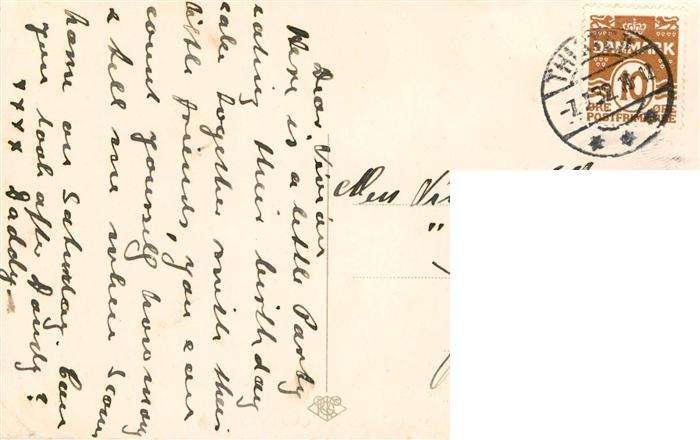 Dear Vivian
Here is a little Party
eating their birthday
cake together with their
little friends, you can
count yourself how many
& tell me when I come
home on Saturday. Can
you look after Dandy?
xxxx Daddy.
Miss Vi
"
DANMARK
10
ØRE ØRE
POSTFRIMÆRKE